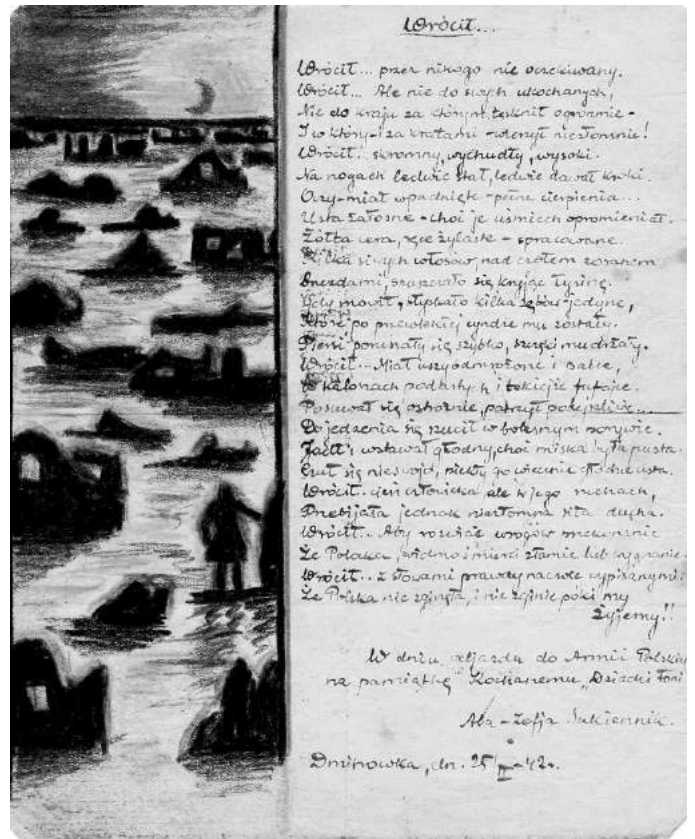 Wrócił...
Wrócił... przez nikogo nie oczekiwany.
Wrócił... Ale nie do swych ukochanych,
Nie do kraju za którym tęsknił ogromnie -
I w który - i za kratami - wierzył niezłomnie!
Wrócił.. skromny, wychudły, wysoki.
Na nogach ledwie stał, ledwie dawał kroki.
Oczy - miał wpadnięte - pełne cierpienia...
Usta żałosne - choć je uśmiech opromieniał.
Żółta cera, ręce żylaste - spracowane.
Kilka siwych włosów, nad czołem zoranem
bruzdami, się kryjąc łysinę.
Gdy mówił, kilka zębów jedyne,
Które po cyndze mu zostały.
Piersi poruszały się szybko, mu drżały.
Wrócił... Miał uszy odmrożone i palce,
W kalonach podartych i takiejże fufajce.
Posuwał się ostrożnie, patrzył
Do jedzenia się rzucił w bolesnym porywie.
Jadł i wstawał głodny, choć miska była pusta.
Czuł się nieswojo, piekły go wiecznie głodne usta.
Wrócił.. cień człowieka ale w jego ruchach,
Przebijała jednak niezłomna siła ducha.
Wrócił... Aby rozwiać wrogów mniemanie
Że Polaka widmo śmierci złamie lub
Wrócił... z słowami prawdy na czole wypisanymi:
Że Polska nie zginęła, i nie zginie póki my
żyjemy!!
W dniu odjazdu do Armii Polskiej
na pamiątkę Kochanemu "Dziadzi
Ala - Zofja Sukiennik.
dn. 25/II - 42r.